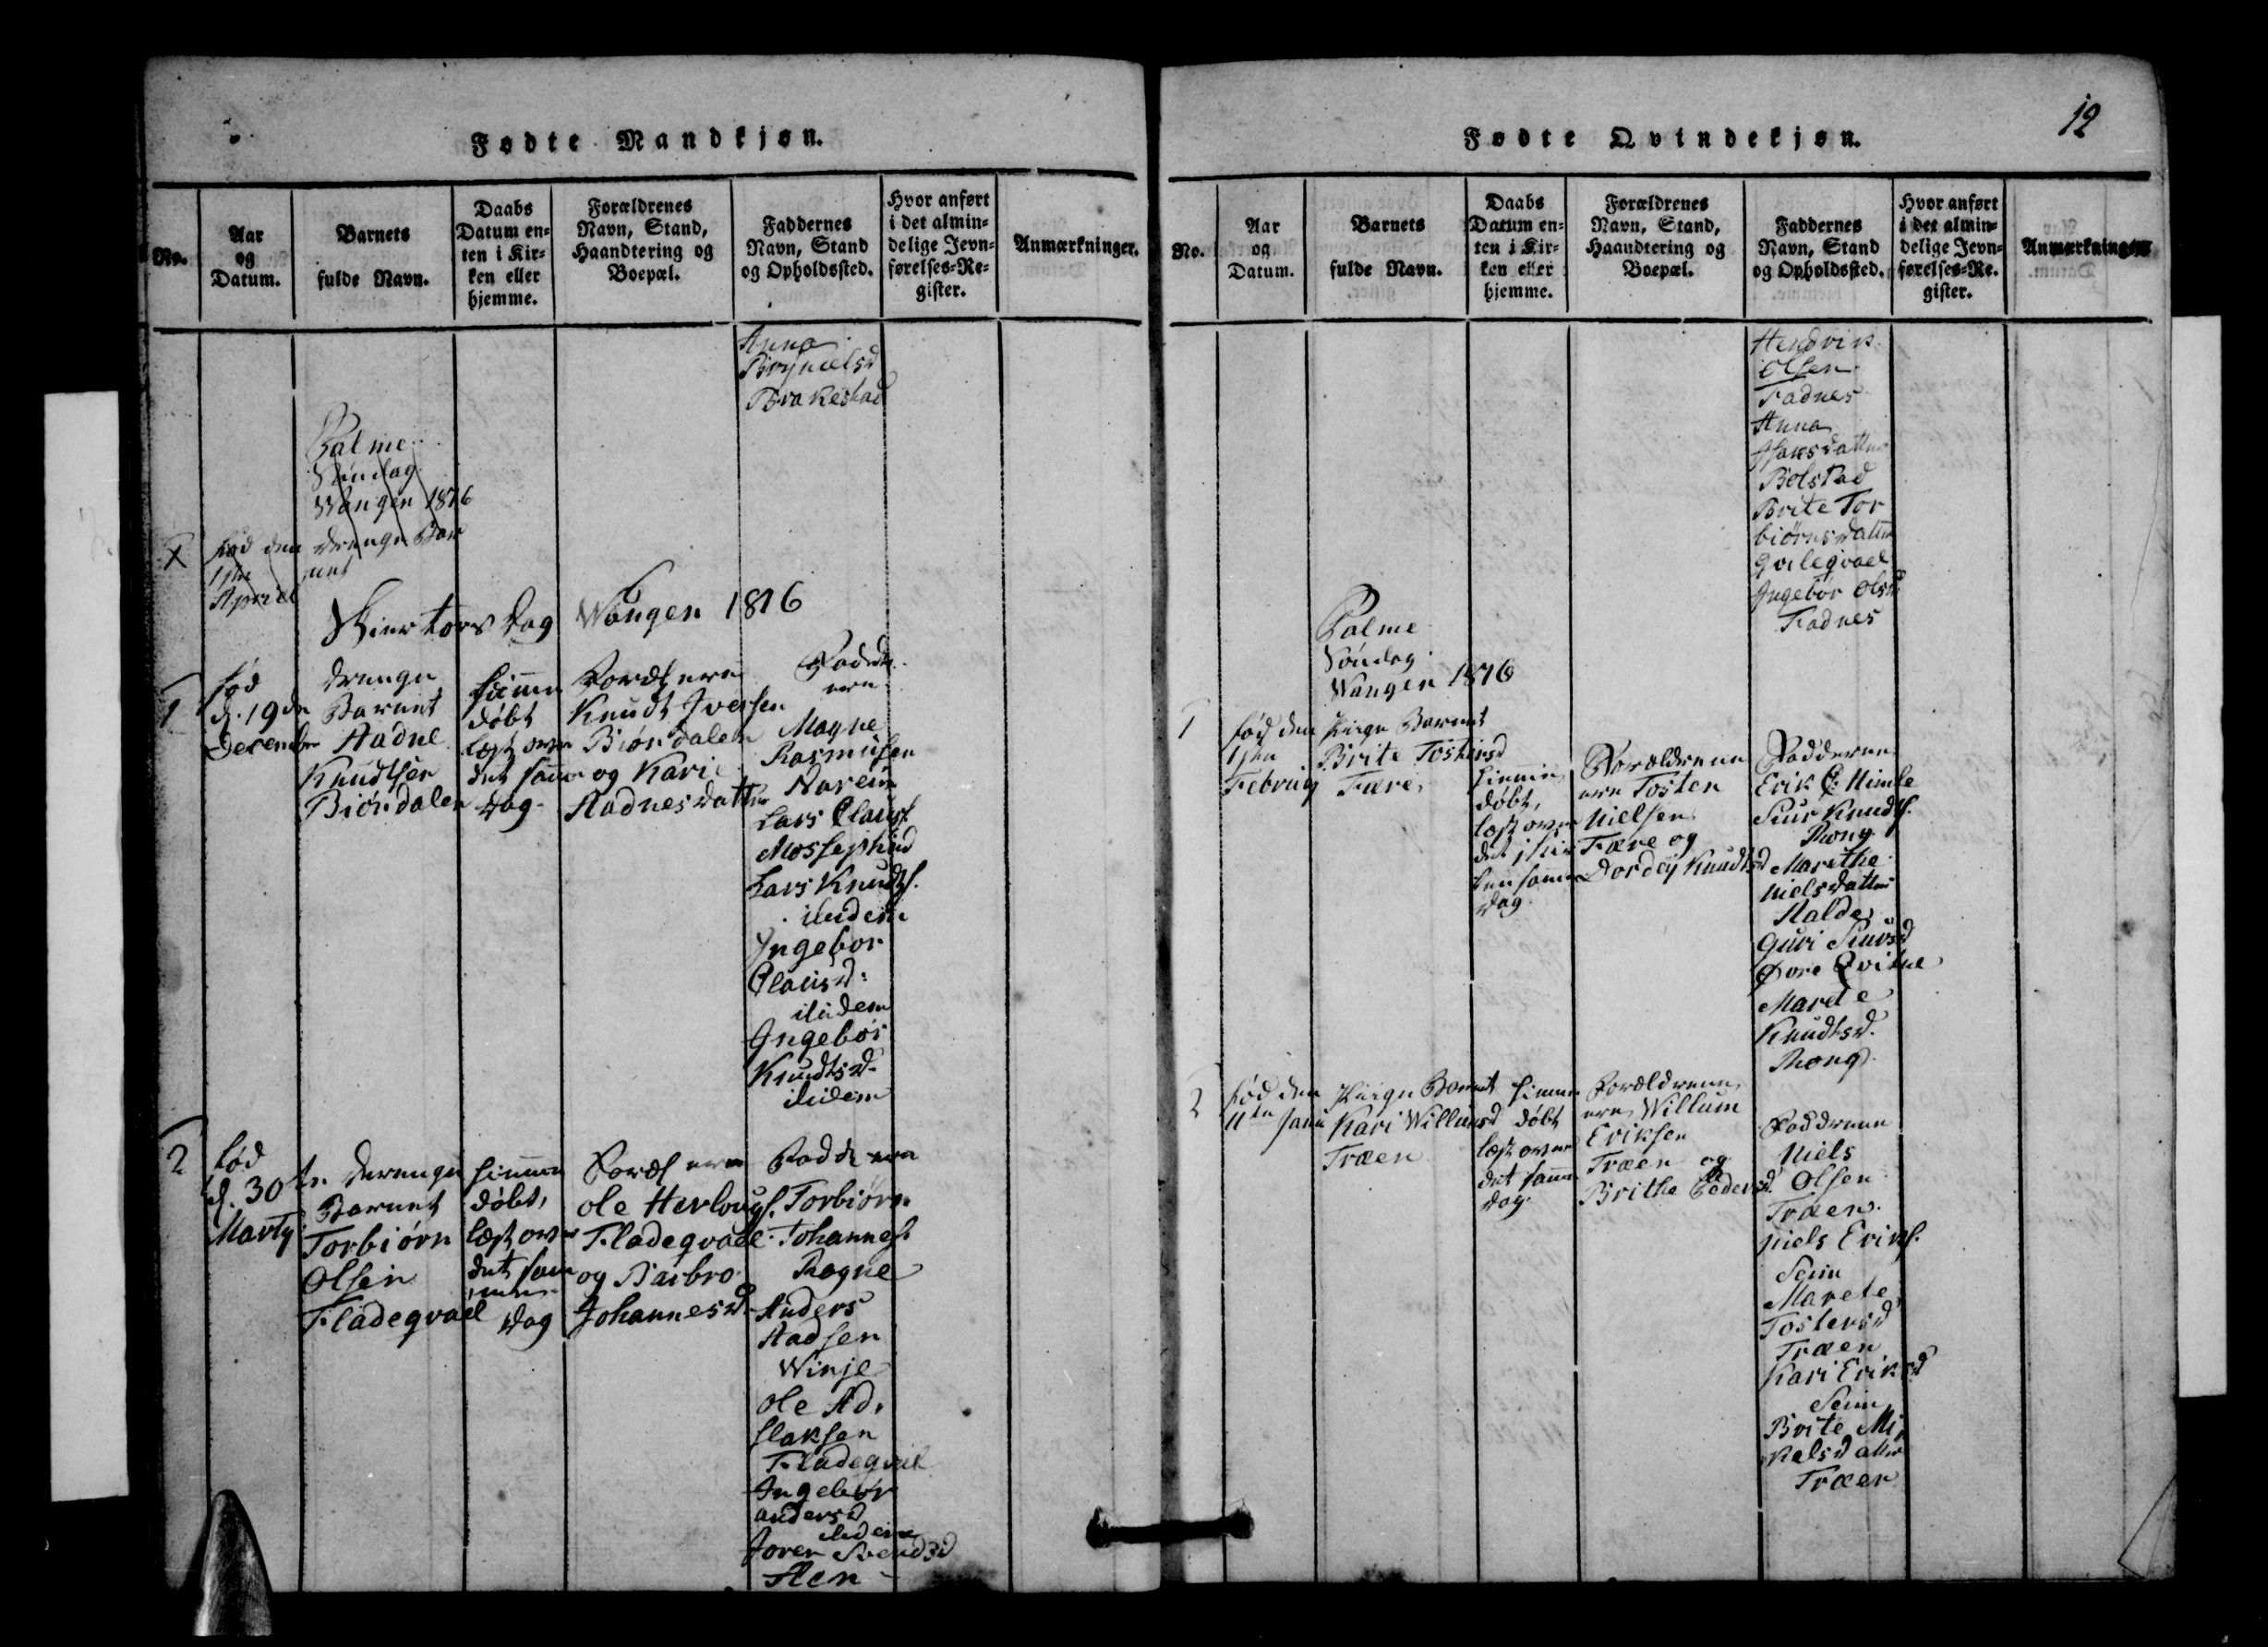 Fødte Mandkjøn.
No.
Aar
og
Datum.
Barnets
fulde Navn.
Daabs
Datum en-
ten i Kir-
ken eller
hjemme.
Forældrenes
Navn, Stand,
Haandtering og
Boepæl.
Faddernes
Navn, Stand
og Opholdssted.
Hvor anført
i det almin-
delige Jevn-
førelses-Re-
gister.
Anmærkninger.
Anna
Brynielsd
Brakestad
Palme
Søndag
Wangen 1816
1
fød den
April
Drenge Bar
net
Skiertorsdag Wangen 1816
1
fød
d. 19de
December
Drenge
Barnet
Aadne
Knudtsen
Biørdalen
hiemme
døbt
læst over
det samme
Dag
Foræl ere
Knudt Iversen
Biørdalen
og Kari
Aadnesdatter
Fadde
rne
Magne
Rasmusen
Lars Clausf.
Lars Knudtsf.
ibidem
Ingebor
Clausd:
ibidem
Ingebor
Knudtsd.
ibidem
2
fød
d. 30te
Marty
Drenge
Barnet
Torbiørn
Olsen
Fladeqvael
hiemme
døbt,
læst over
det sam
me
Dag
Foræl ere
Ole Herlougs.
Fladeqvael
og Barbro
Johannesd.
Fadde rne
Torbiørn
Johannes
Rogne
Anders
Aadsen
Winje
Ole Ad-
slaksen
Fladeqvael
Ingebør
Andersd
ibidem
Joren Svendsd
Aen
12
Fødte Qvindekjøn.
No.
Aar
og
Datum.
Barnets
fulde Navn.
Daabs
Datum en-
ten i Kir-
ken eller
hjemme.
Forældrenes
Navn, Stand,
Haandtering og
Boepæl.
Faddernes
Navn, Stand
og Opholdssted.
Hvor anført
i det almin-
delige Jevn-
førelses-Re-
gister.
Anmærkninger
Hendrik
Olsen
Fadnes
Anna
Isaksdatter
Bolstad
Brite Tor
biørnsdatter
Ingebør Olsd
Fadnes
Palme
Søndag
Wangen 1816
1
fød den
Februarj
Pige Barnet
Brite Tostensd
Fære
hiemme
døbt,
læst over
det i Kir
ken samme
Dag
Forældrene
ere Tosten
Nielsen
Fære og
Dordey Knudtsd
Fadderne
Erik C: Himle
Siur Knudtsf.
Rong
Marethe
Nielsdatter
Nalde
Guri Siursd
Øvre Qvitne
Marete
Knudtsd.
Rong
2
fød den
11te Janu
Pige Barnet
Kari Willumsd
Træen
hiemme
døbt
læst over
det samme
Dag
Forældrene
ere Willum
Eriksen
Træen og
Brithe Pedersd.
Faddrene
Niels
Olsen
Træen
Niels Eriks.
Seim
Marete
Tostensd
Træen
Kari Eriksd
Seim
Brite Mi
kelsdatter
Træen